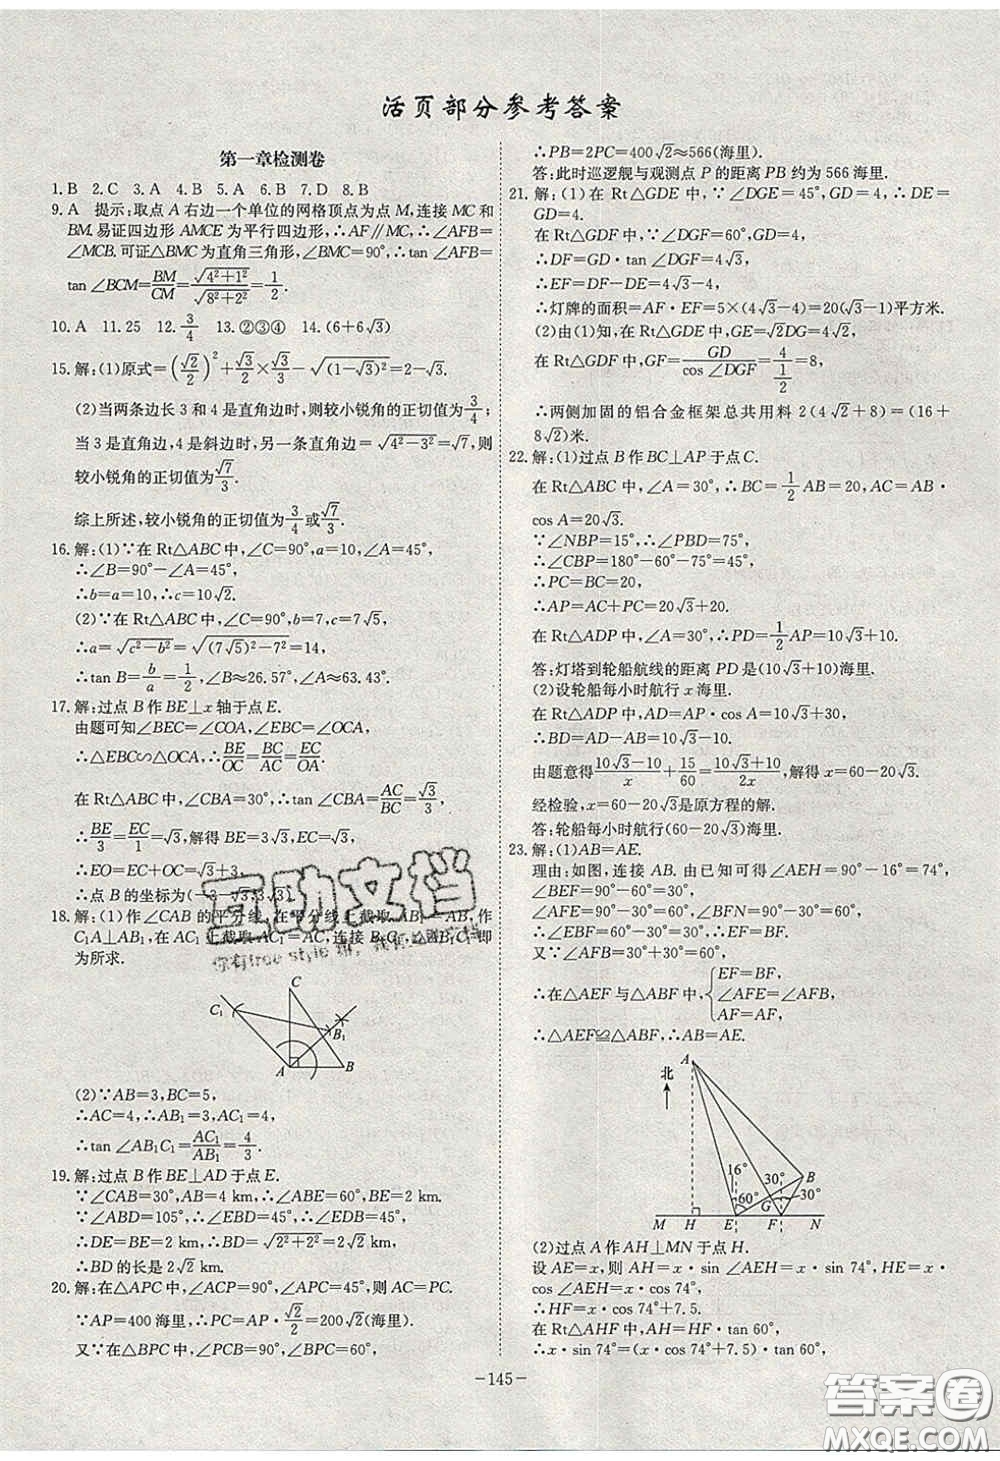 活页部分参考答案
第一章检测卷
1.B 2.C 3.A 4.B 5.A 6.B 7.D 8.B
9.A 提示:取点 A 右边一个单位的网格顶点为点 M,连接 MC 和
BM.易证四边形 AMCE 为平行四边形,∴AF∥MC,∴∠AFB=
∠MCB.可证△BMC 为直角三角形,∠BMC=90°,∴tan ∠AFB=
tan ∠BCM=BM/CM=√(4²+1²)/√(8²+2²)=1/2.
10.A 11.25 12.3/4 13.②③④ 14.(6+6√3)
15.解:(1)原式=(√2/2)²+√3/2×√3-√(1-√3)²=2-√3.
(2)当两条边长 3 和 4 是直角边时,则较小锐角的正切值为3/4;
当 3 是直角边,4 是斜边时,另一条直角边=√(4²-3²)=√7,则
较小锐角的正切值为√7/3.
综上所述,较小锐角的正切值为3/4或√7/3.
16.解:(1)∵在 Rt△ABC 中,∠C=90°,a=10,∠A=45°,
∴∠B=90°-∠A=45°,
∴b=a=10,∴c=10√2.
(2)∵在 Rt△ABC 中,∠C=90°,b=7,c=7√5,
∴a=√(c²-b²)=√((7√5)²-7²)=14,
∴tan B=b/a=1/2,∴∠B≈26.57°,∴∠A≈63.43°.
17.解:过点 B 作 BE⊥x 轴于点 E.
由题可知∠BEC=∠COA,∠EBC=∠OCA,
∴△EBC∽△OCA,∴BE/OC=BC/AC=EC/OA.
在 Rt△ABC 中,∠CBA=30°,∴tan∠CBA=AC/BC=√3/3,
∴BE/3=EC/1=√3,解得 BE=3√3,EC=√3,
∴EO=EC+OC=√3+3,
∴点 B 的坐标为(-3-√3,3√3).
18.解:(1)作∠CAB 的平分线,在平分线上截取 AB₁=AB,作
C₁A⊥AB₁,在 AC₁ 上截取 AC₁=AC,连接 B₁C₁,△AB₁C₁ 即
为所求.
C
C₁
B₁
A
B
(2)∵AB=3,BC=5,
∴AC=4,∴AB₁=3,AC₁=4,
∴tan ∠AB₁C₁=AC₁/AB₁=4/3.
19.解:过点 B 作 BE⊥AD 于点 E.
∵∠CAB=30°,AB=4 km,∴∠ABE=60°,BE=2 km.
∵∠ABD=105°,∴∠EBD=45°,∴∠EDB=45°,
∴DE=BE=2 km,∴BD=√(2²+2²)=2√2 km,
∴BD 的长是 2√2 km.
20.解:在△APC 中,∠ACP=90°,∠APC=45°,则 AC=PC.
∵AP=400 海里,∴PC=AP·√2/2=200√2(海里).
又∵在△BPC 中,∠PCB=90°,∠BPC=60°,
∴PB=2PC=400√2≈566(海里).
答:此时巡逻舰与观测点 P 的距离 PB 约为 566 海里.
21.解:(1)在 Rt△GDE 中,∵∠DGE=45°,GD=4,∴DE=
GD=4.
在 Rt△GDF 中,∵∠DGF=60°,GD=4,
∴DF=GD·tan∠DGF=4√3,
∴EF=DF-DE=4√3-4,
∴灯牌的面积=AF·EF=5×(4√3-4)=(20√3-20)平方米.
(2)由(1)知,在 Rt△GDE 中,GE=√2DG=4√2,
在 Rt△GDF 中,GF=GD/cos ∠DGF=4/(1/2)=8,
∴两侧加固的铝合金框架总共用料 2(4√2+8)=(16+
8√2)米.
22.解:(1)过点 B 作 BC⊥AP 于点 C.
在 Rt△ABC 中,∠A=30°,∴BC=1/2AB=20,AC=AB·
cos A=20√3.
∵∠NBP=15°,∴∠PBD=75°,
∴∠CBP=180°-60°-75°=45°,
∴PC=BC=20,
∴AP=AC+PC=20√3+20.
在 Rt△ADP 中,∠A=30°,∴PD=1/2AP=10√3+10.
答:灯塔到轮船航线的距离 PD 是(10√3+10)海里.
(2)设轮船每小时航行 x 海里.
在 Rt△ADP 中,AD=AP·cos A=10√3+30,
∴BD=AD-AB=10√3-10.
由题意得(10√3-10)/x+15/60=(10√3+10)/2x,解得 x=60-20√3.
经检验,x=60-20√3是原方程的解.
答:轮船每小时航行(60-20√3)海里.
23.解:(1)AB=AE.
理由:如图,连接 AB.由已知可得∠AEH=90°-16°=74°,
∠BEF=90°-60°=30°,∠BFN=90°-30°=60°,
∴∠EBF=60°-30°=30°,∴EF=BF.
又∵∠AFB=30°+30°=60°,
∴在△AEF 与△ABF 中,{EF=BF,
∠AFE=∠AFB,
AF=AF,
∴△AEF≌△ABF,∴AB=AE.
北
A
16°
30°
B
60°
G
30°
M H E F N
(2)过点 A 作 AH⊥MN 于点 H.
设 AE=x,则 AH=x·sin ∠AEH=x·sin 74°,HE=x·
cos ∠AEH=x·cos 74°,
∴HF=x·cos 74°+7.5.
在 Rt△AHF 中,AH=HF·tan 60°,
∴x·sin 74°=(x·cos 74°+7.5)·tan 60°,
-145-
互助文档
答案卷
MXQE.COM